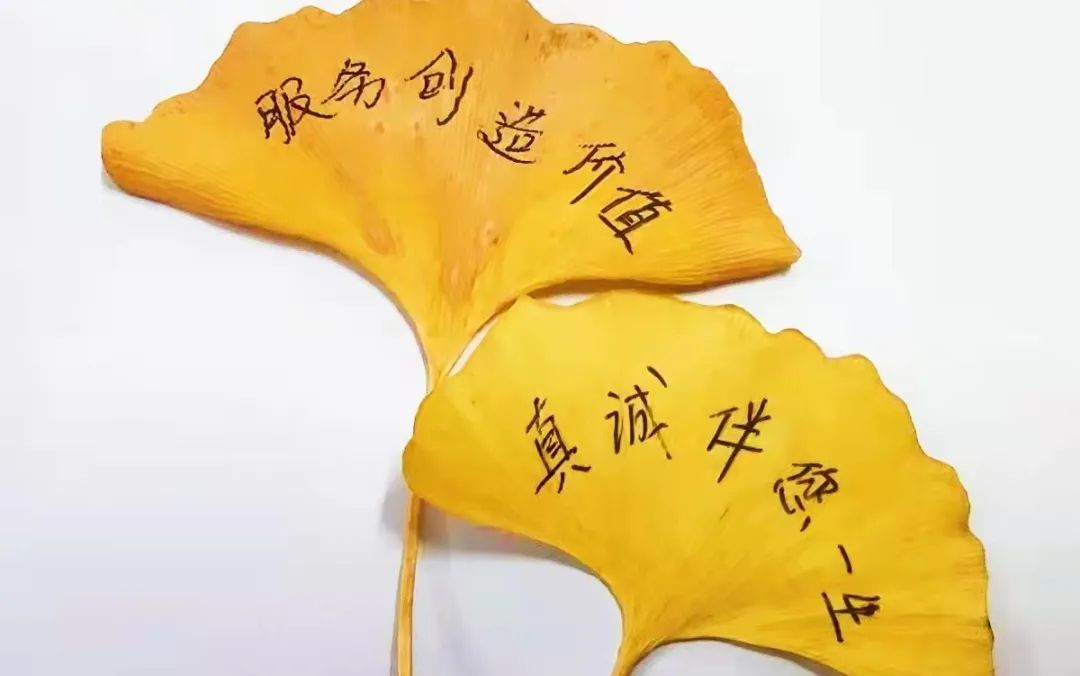 服务创造价值
真诚伴您一生